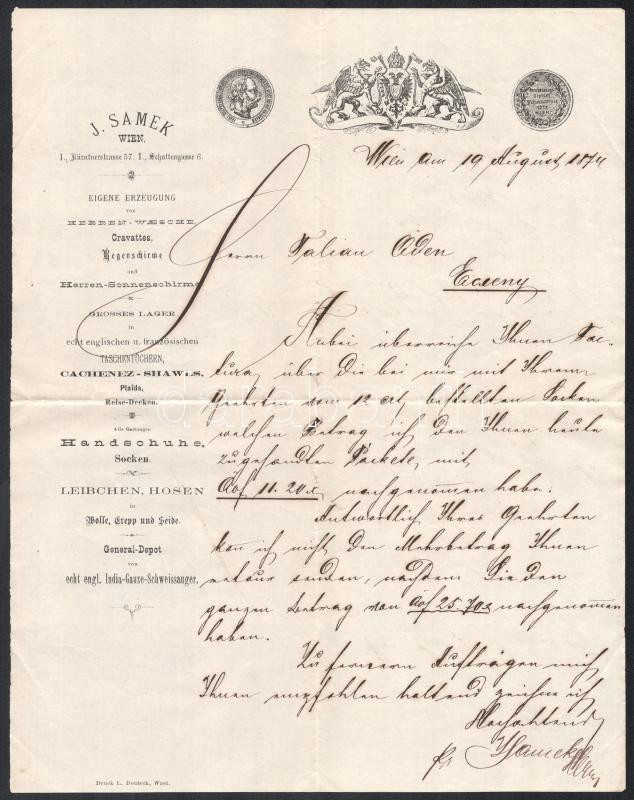 J. SAMEK
WIEN.
I., Kärntnerstrasse 57. I., Schottengasse 6.
EIGENE ERZEUGUNG
von
HERREN-WÆSCHE,
Cravattes,
Regenschirme
und
Herren-Sonnenschirme
GROSSES LAGER
in
echt englischen u. französischen
TASCHENTÜCHERN,
CACHENEZ-SHAWLS,
Plaids,
Reise-Decken.
Alle Gattungen
Handschuhe,
Socken.
LEIBCHEN, HOSEN
in
Wolle, Crepp und Seide.
General-Depot
von
echt engl. India-Gauze-Schweissauger.
Wien am 19 August 1874
Herrn Talian Öden
Anbei überreiche Ihnen Fac-
tura über die bei mir mit Ihrem
Geehrten vom 12 ct bestellten Socken
welchen Betrag ich den Ihnen heute
zugesandten Packete, mit
11.20 x nachgenommen habe.
Antwortlich Ihres Geehrten
kan ich nicht den Mehrbetrag Ihnen
retour senden, nachdem Sie den
ganzen Betrag von 25.70 x nachgenommen
haben.
Zu fernern Aufträgen mich
Ihnen empfohlen haltend zeichne ich
Hochachtend
JSamek
Druck L. Deutsch, Wien.